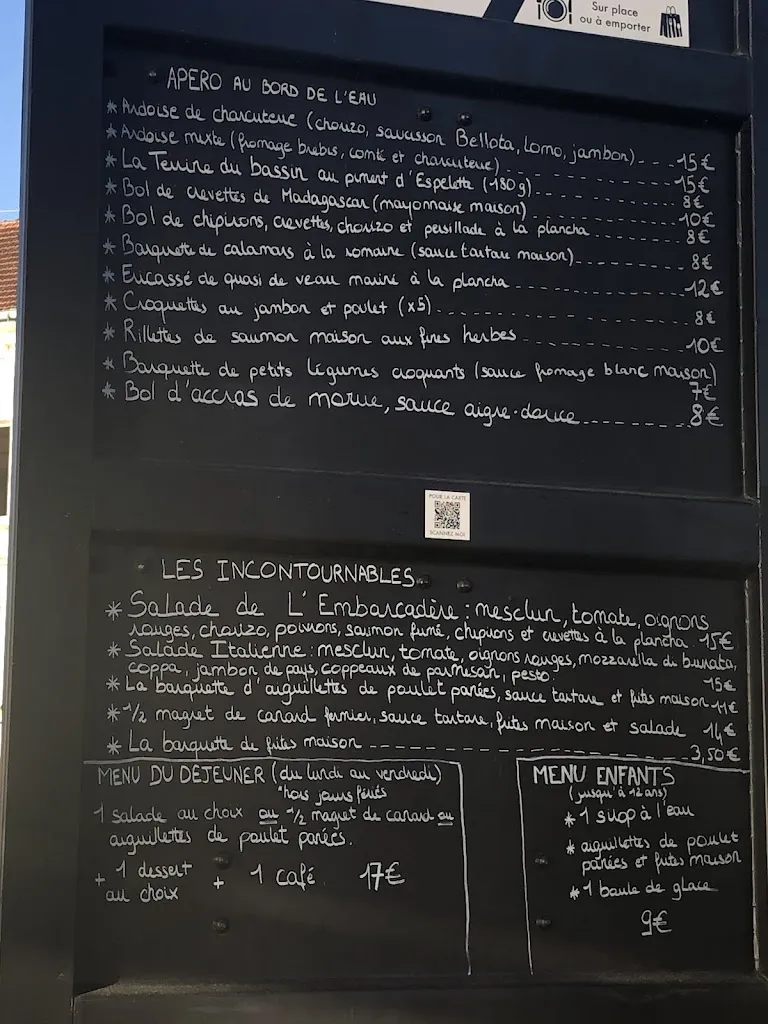 Sur place
ou à emporter
APERO AU BORD DE L'EAU
* Ardoise de charcuterie (chorizo, saucisson Bellota, Lomo, jambon) --- 15€
* Ardoise mixte (fromage brebis, comté et charcuterie) ------- 15€
* La Terrine du bassin au piment d'Espelette (180g) ------- 8€
* Bol de crevettes de Madagascar (mayonnaise maison) ------- 10€
* Bol de chipirons, crevettes, chorizo et persillade à la plancha ------- 8€
* Barquette de calamars à la romaine (sauce tartare maison) ------- 8€
* Eucassé de quasi de veau mariné à la plancha ------- 12€
* Croquettes au jambon et poulet (x5) ------- 8€
* Rillettes de saumon maison aux fines herbes ------- 10€
* Barquette de petits légumes croquants (sauce fromage blanc maison)
7€
* Bol d'accras de morue, sauce aigre-douce ------- 8€
POUR LA CARTE
SCANNEZ MOI
LES INCONTOURNABLES
* Salade de L'Embarcadère : mesclun, tomate, oignons
rouges, chorizo, poivrons, saumon fumé, chipirons et crevettes à la plancha 15€
* Salade Italienne : mesclun, tomate, oignons rouges, mozzarella di burrata,
coppa, jambon de pays, coppeaux de parmesan, pesto. 15€
* La barquette d'aiguillettes de poulet panées, sauce tartare et frites maison 11€
* 1/2 magret de canard fermier, sauce tartare, frites maison et salade 14€
* La barquette de frites maison ------- 3,50€
MENU DU DEJEUNER (du lundi au vendredi)
*hors jours fériés
1 salade au choix ou 1/2 magret de canard ou
aiguillettes de poulet panées.
+ 1 dessert
au choix
+ 1 café 17€
MENU ENFANTS
(jusqu'à 12 ans)
* 1 sirop à l'eau
* aiguillettes de poulet
panées et frites maison
* 1 boule de glace
9€